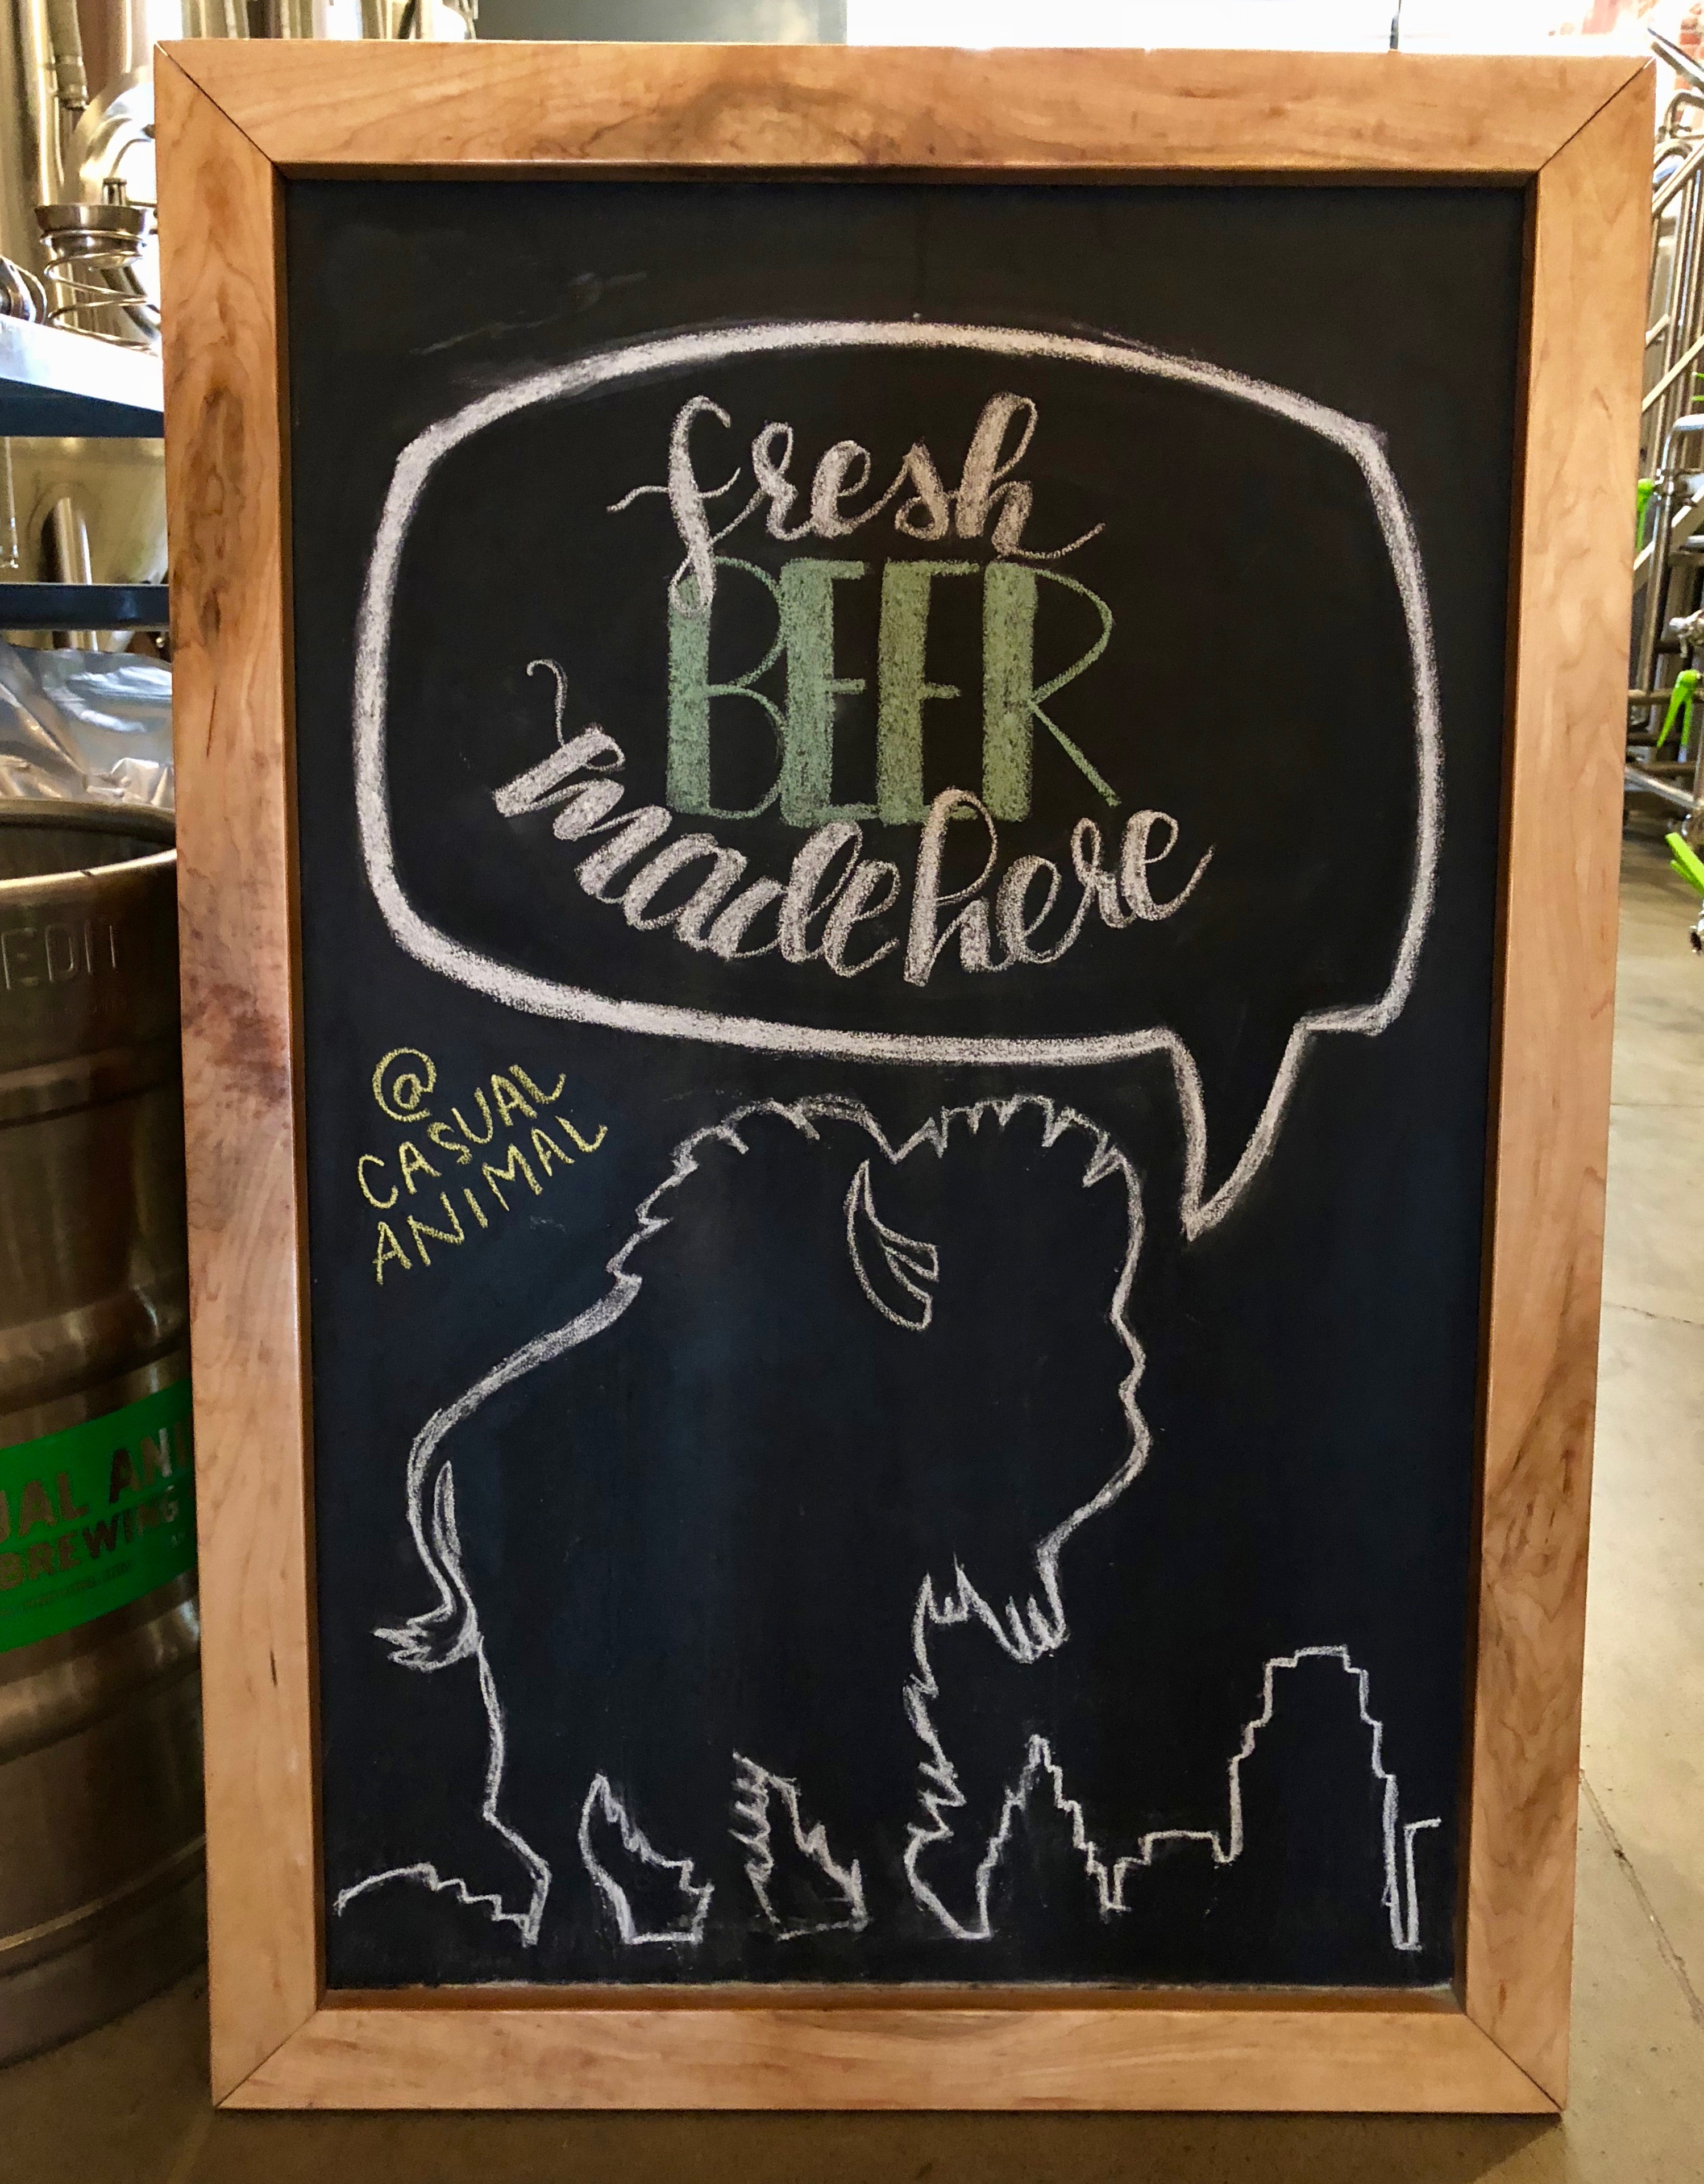 fresh
BEER
made here
@
CASUAL
ANIMAL
EDII
UAL ANI
BREWING